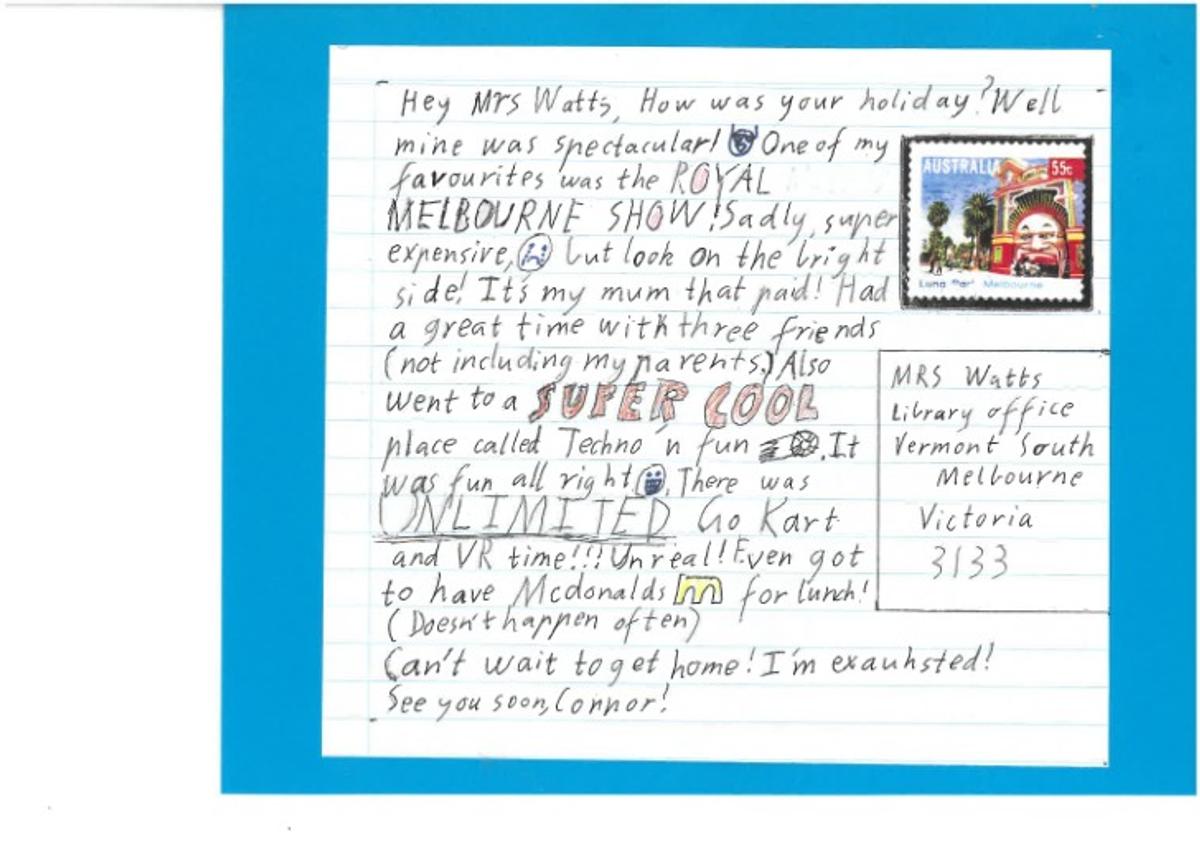 Hey Mrs Watts, How was your holiday? Well
mine was spectacular! One of my
favourites was the ROYAL
MELBOURNE SHOW! Sadly, super
expensive, but look on the bright
side! It's my mum that paid! Had
a great time with three friends
(not including my parents.) Also
went to a SUPER COOL
place called Techno 'n fun. It
was fun all right. There was
UNLIMITED Go Kart
and VR time!!! Unreal! Even got
to have Mcdonalds m for lunch!
(Doesn't happen often)
Can't wait to get home! I'm exauhsted!
See you soon, Connor!
AUSTRALIA 55c
Luna Park Melbourne
MRS Watts
Library office
Vermont South
Melbourne
Victoria
3133